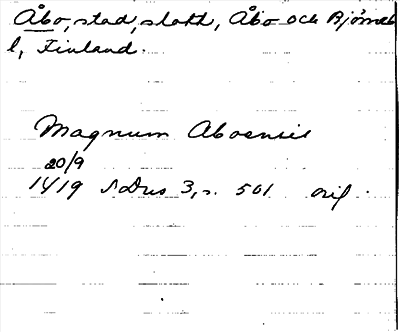 Åbo, stad, slott, Åbo och Björneb
l, Finland.
Magnum Aboensis
20/9
1419 SDns 3, s. 501 orig.